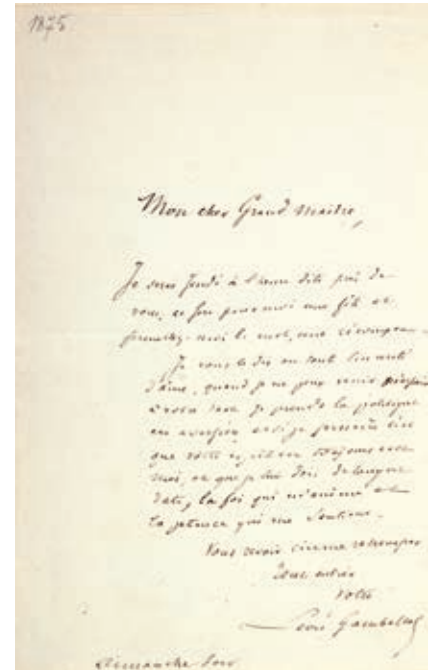 1875
Mon cher Grand Maître,
Je serai Jeudi à l'heure dite près de
vous, ce sera pour moi une fête et
permettez-moi le mot, une récompense
Je vous le dis en toute sincérité
d'âme, quand je ne peux venir
à votre je prends la politique
en aversion, et si je persévère c'est
que votre toujours avec
moi, et que je lui dois de longue
date, la foi qui m'anime et
la patience qui me soutient.
Vous revoir c'est me retremper
Tout entier
Votre
Léon Gambetta
Dimanche soir